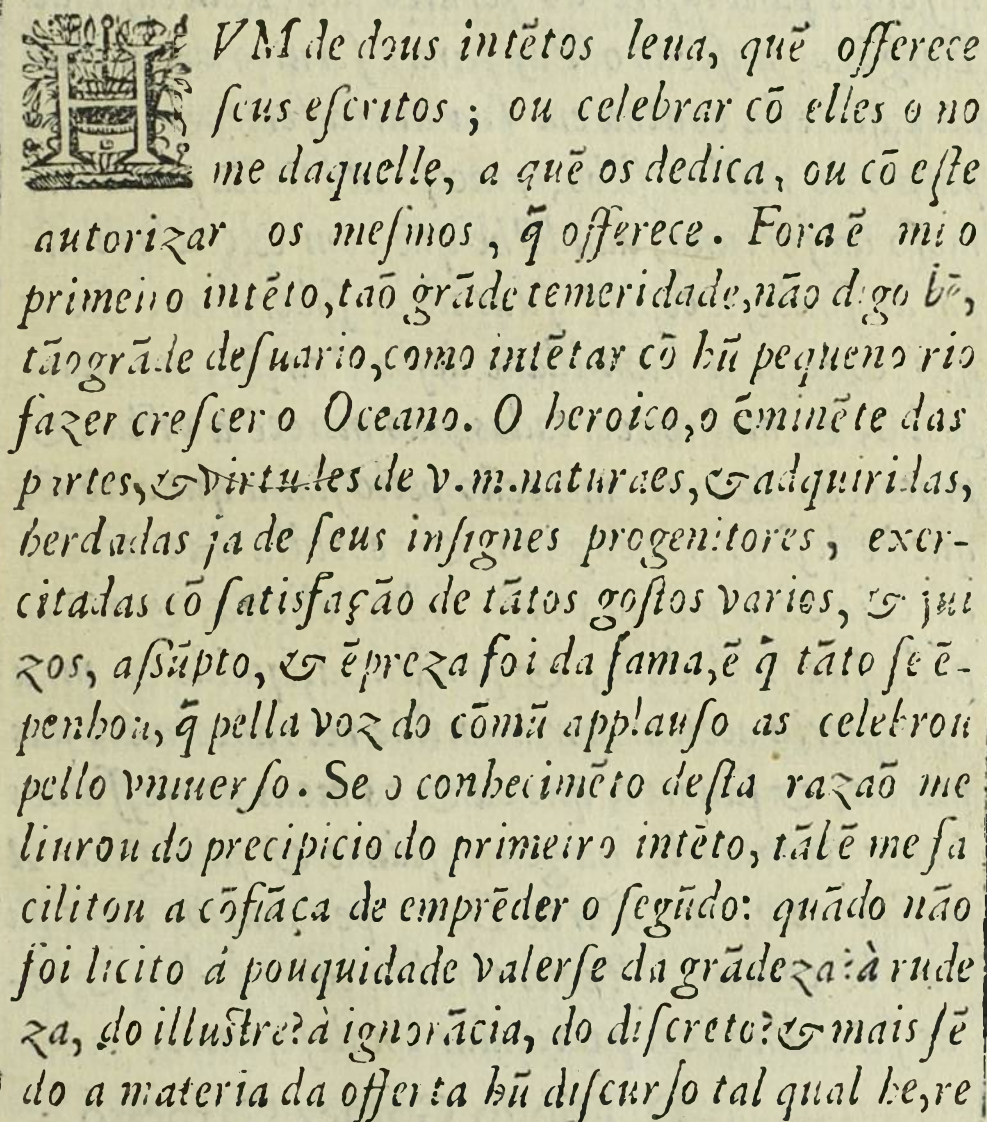 HVM de dous intẽtos leua, quẽ offerece
ſeus eſcritos ; ou celebrar cõ elles o no
me daquelle, a quẽ os dedica, ou cõ eſte
autorizar os meſmos, q̃ offerece. Fora ẽ mi o
primeiro intẽto, taõ grãde temeridade, não digo bẽ,
tão grãde deſuario, como intẽtar cõ hũ pequeno rio
fazer creſcer o Oceano. O heroico, o ẽminẽte das
partes, & virtudes de v. m. naturaes, & adquiridas,
herdadas ja de ſeus inſignes progenitores, exer-
citadas cõ ſatisfação de tãtos goſtos varios, & jui
zos, aſsũpto, & ẽpreza foi da fama, ẽ q̃ tãto ſe ẽ-
penhou, q̃ pella voz do cõmũ applauſo as celebrou
pello vniuerſo. Se o conhecimẽto deſta razaõ me
liurou do precipicio do primeiro intẽto, tãlẽ me fa
cilitou a cõfiãça de emprẽder o ſegũdo: quãdo não
foi licito á pouquidade valerſe da grãdeza? à rude
za, do illuſtre? à ignorãcia, do diſcreto? & mais ſẽ
do a materia da offerta hũ diſcurſo tal qual he, re